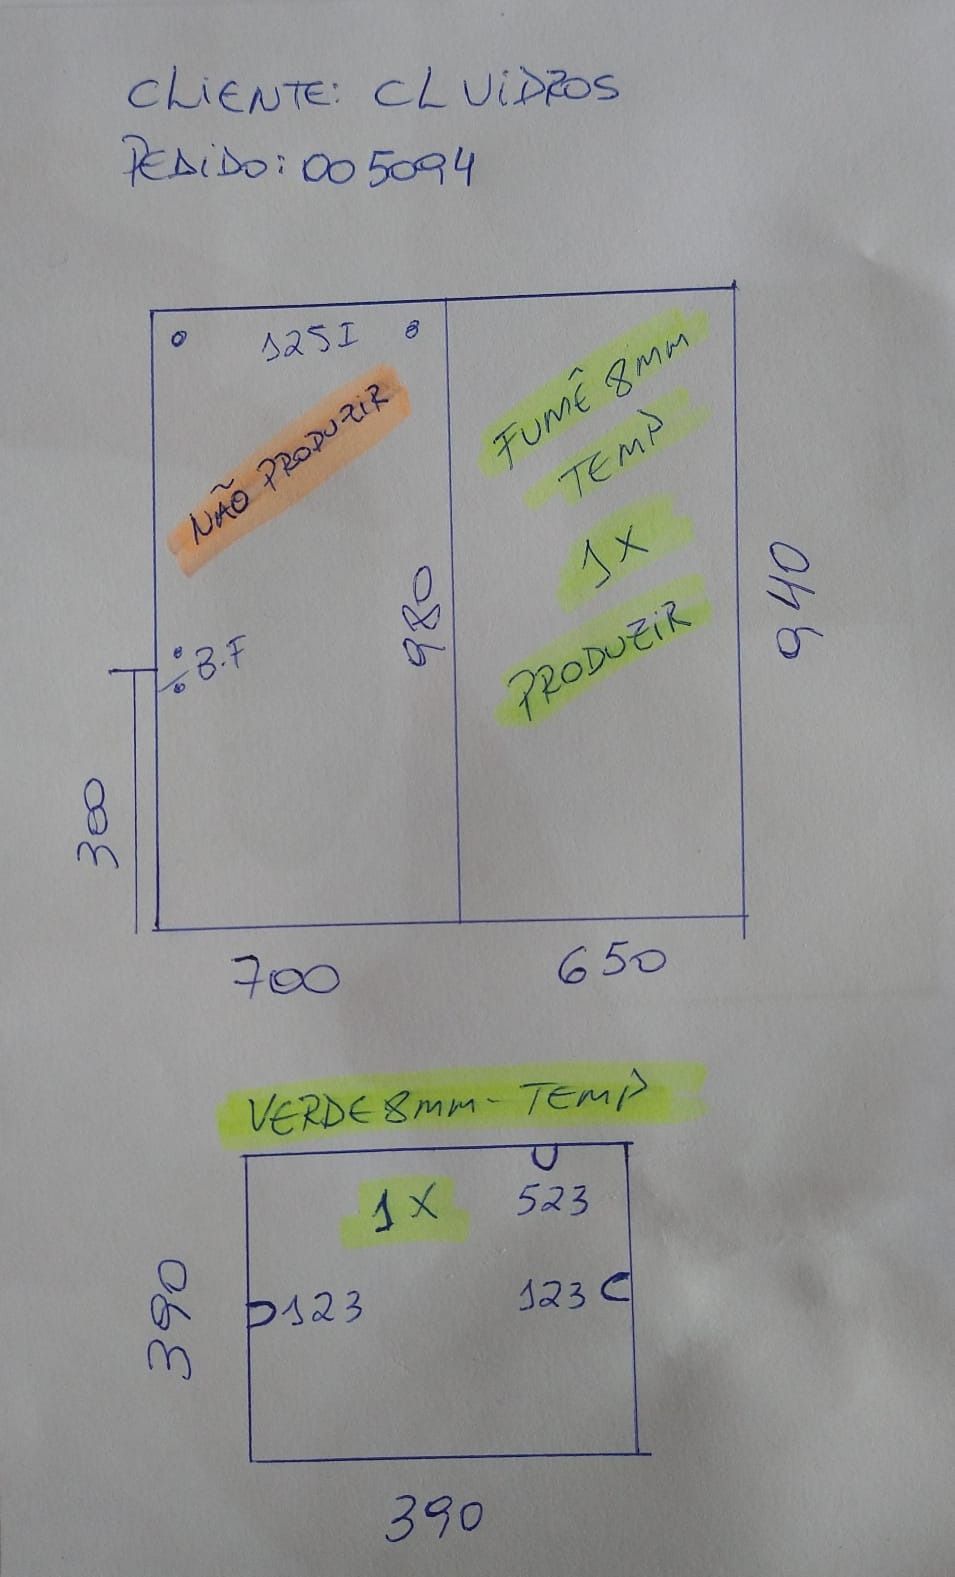 CLIENTE: CL VIDROS
PEDIDO: 005094
125I
NÃO PRODUZIR
FUMÊ 8mm
TEMP
1X
PRODUZIR
980
940
B.F
300
700
650
VERDE 8mm - TEMP
1X
523
390
123
123
390